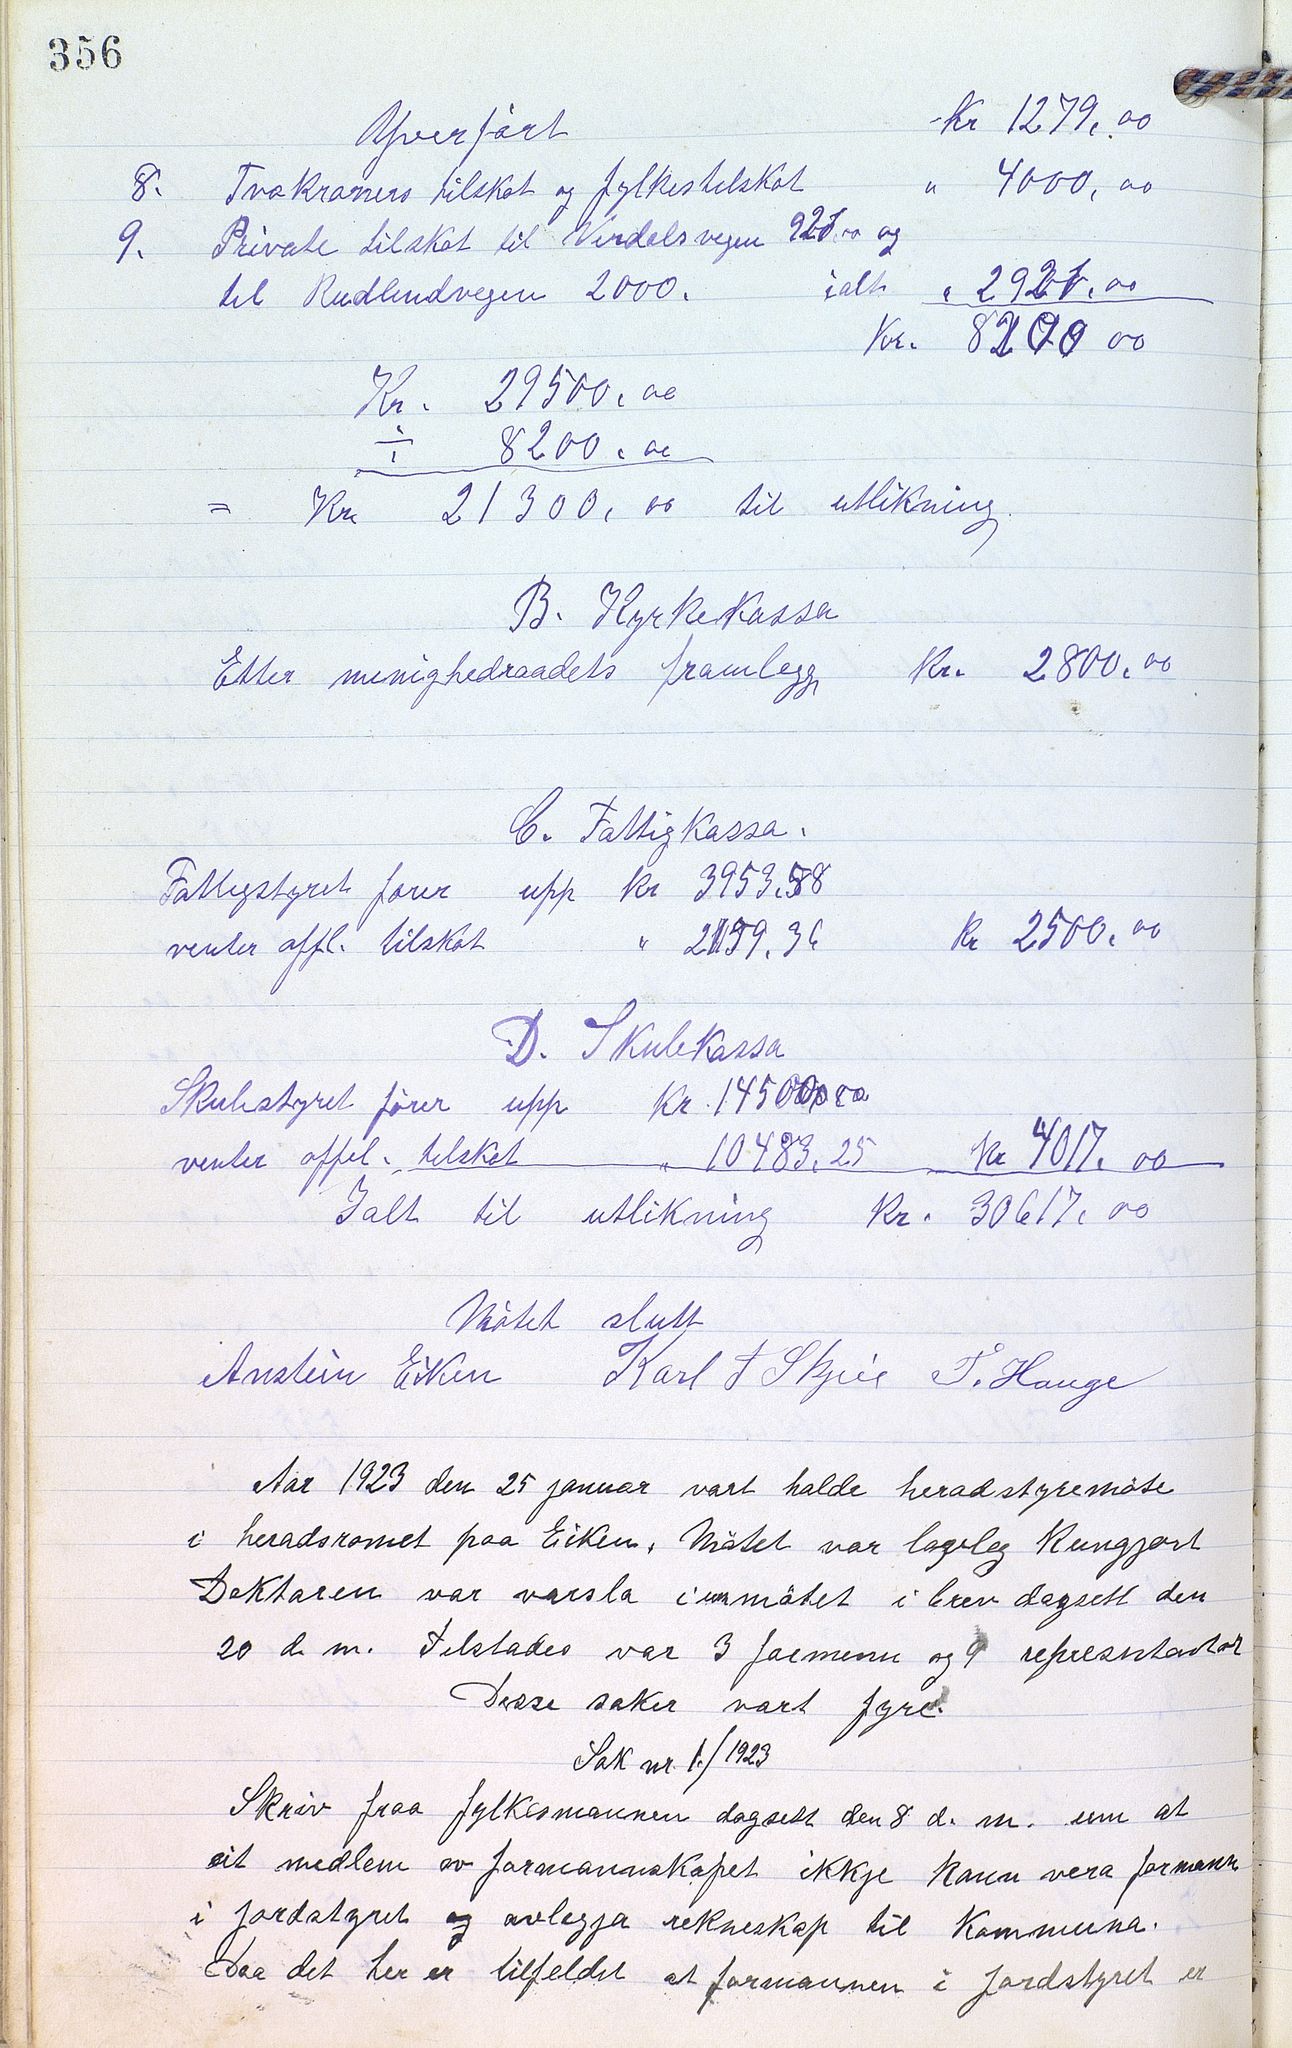 356
Yverfört Kr 1279,00
8. Tvokroners tilskot og fylkestilskot " 4000,00
9. Private tilskot til Verdalsvegen 921.00 og
til Rudlendvegen 2000. ialt " 2921.00
Kr. 8200 00
Kr. 29500.00
÷ 8200.00
= Kr 21300,00 til utlikning.
B. Kyrkekassa
Etter menighedraadets framlegg Kr. 2800.00
C. Fattigkassa.
Fattigstyret förer upp Kr 3953.58
venter offl. tilskot " 36 Kr 2500.00
D. Skulekassa
Skulestyret förer upp Kr. 14500,00
venter offel. tilskot " 10483.25 Kr 4017.00
Ialt til utlikning Kr. 30617.00
Mötet slutt
Anstein Eiken Karl F Skjeie T. Hauge
Aar 1923 den 25 januar vart halde heradstyremöte
i heradsromet paa Eiken. Mötet var lagleg Kungjort
Doktaren var varsla um mötet i brev dagsett den
20 d. m. Tilstades var 3 formenn og 9 representantar
Desse saker vart fyre.
Sak nr. 1./1923
Skriv fraa fylkesmannen dagsett den 8 d. m. um at
eit medlem av formannskapet ikkje kann vera formann
i jordstyret og avlegja rekneskap til Kommuna.
Daa det her er tilfeldet at formannen i jordstyret er